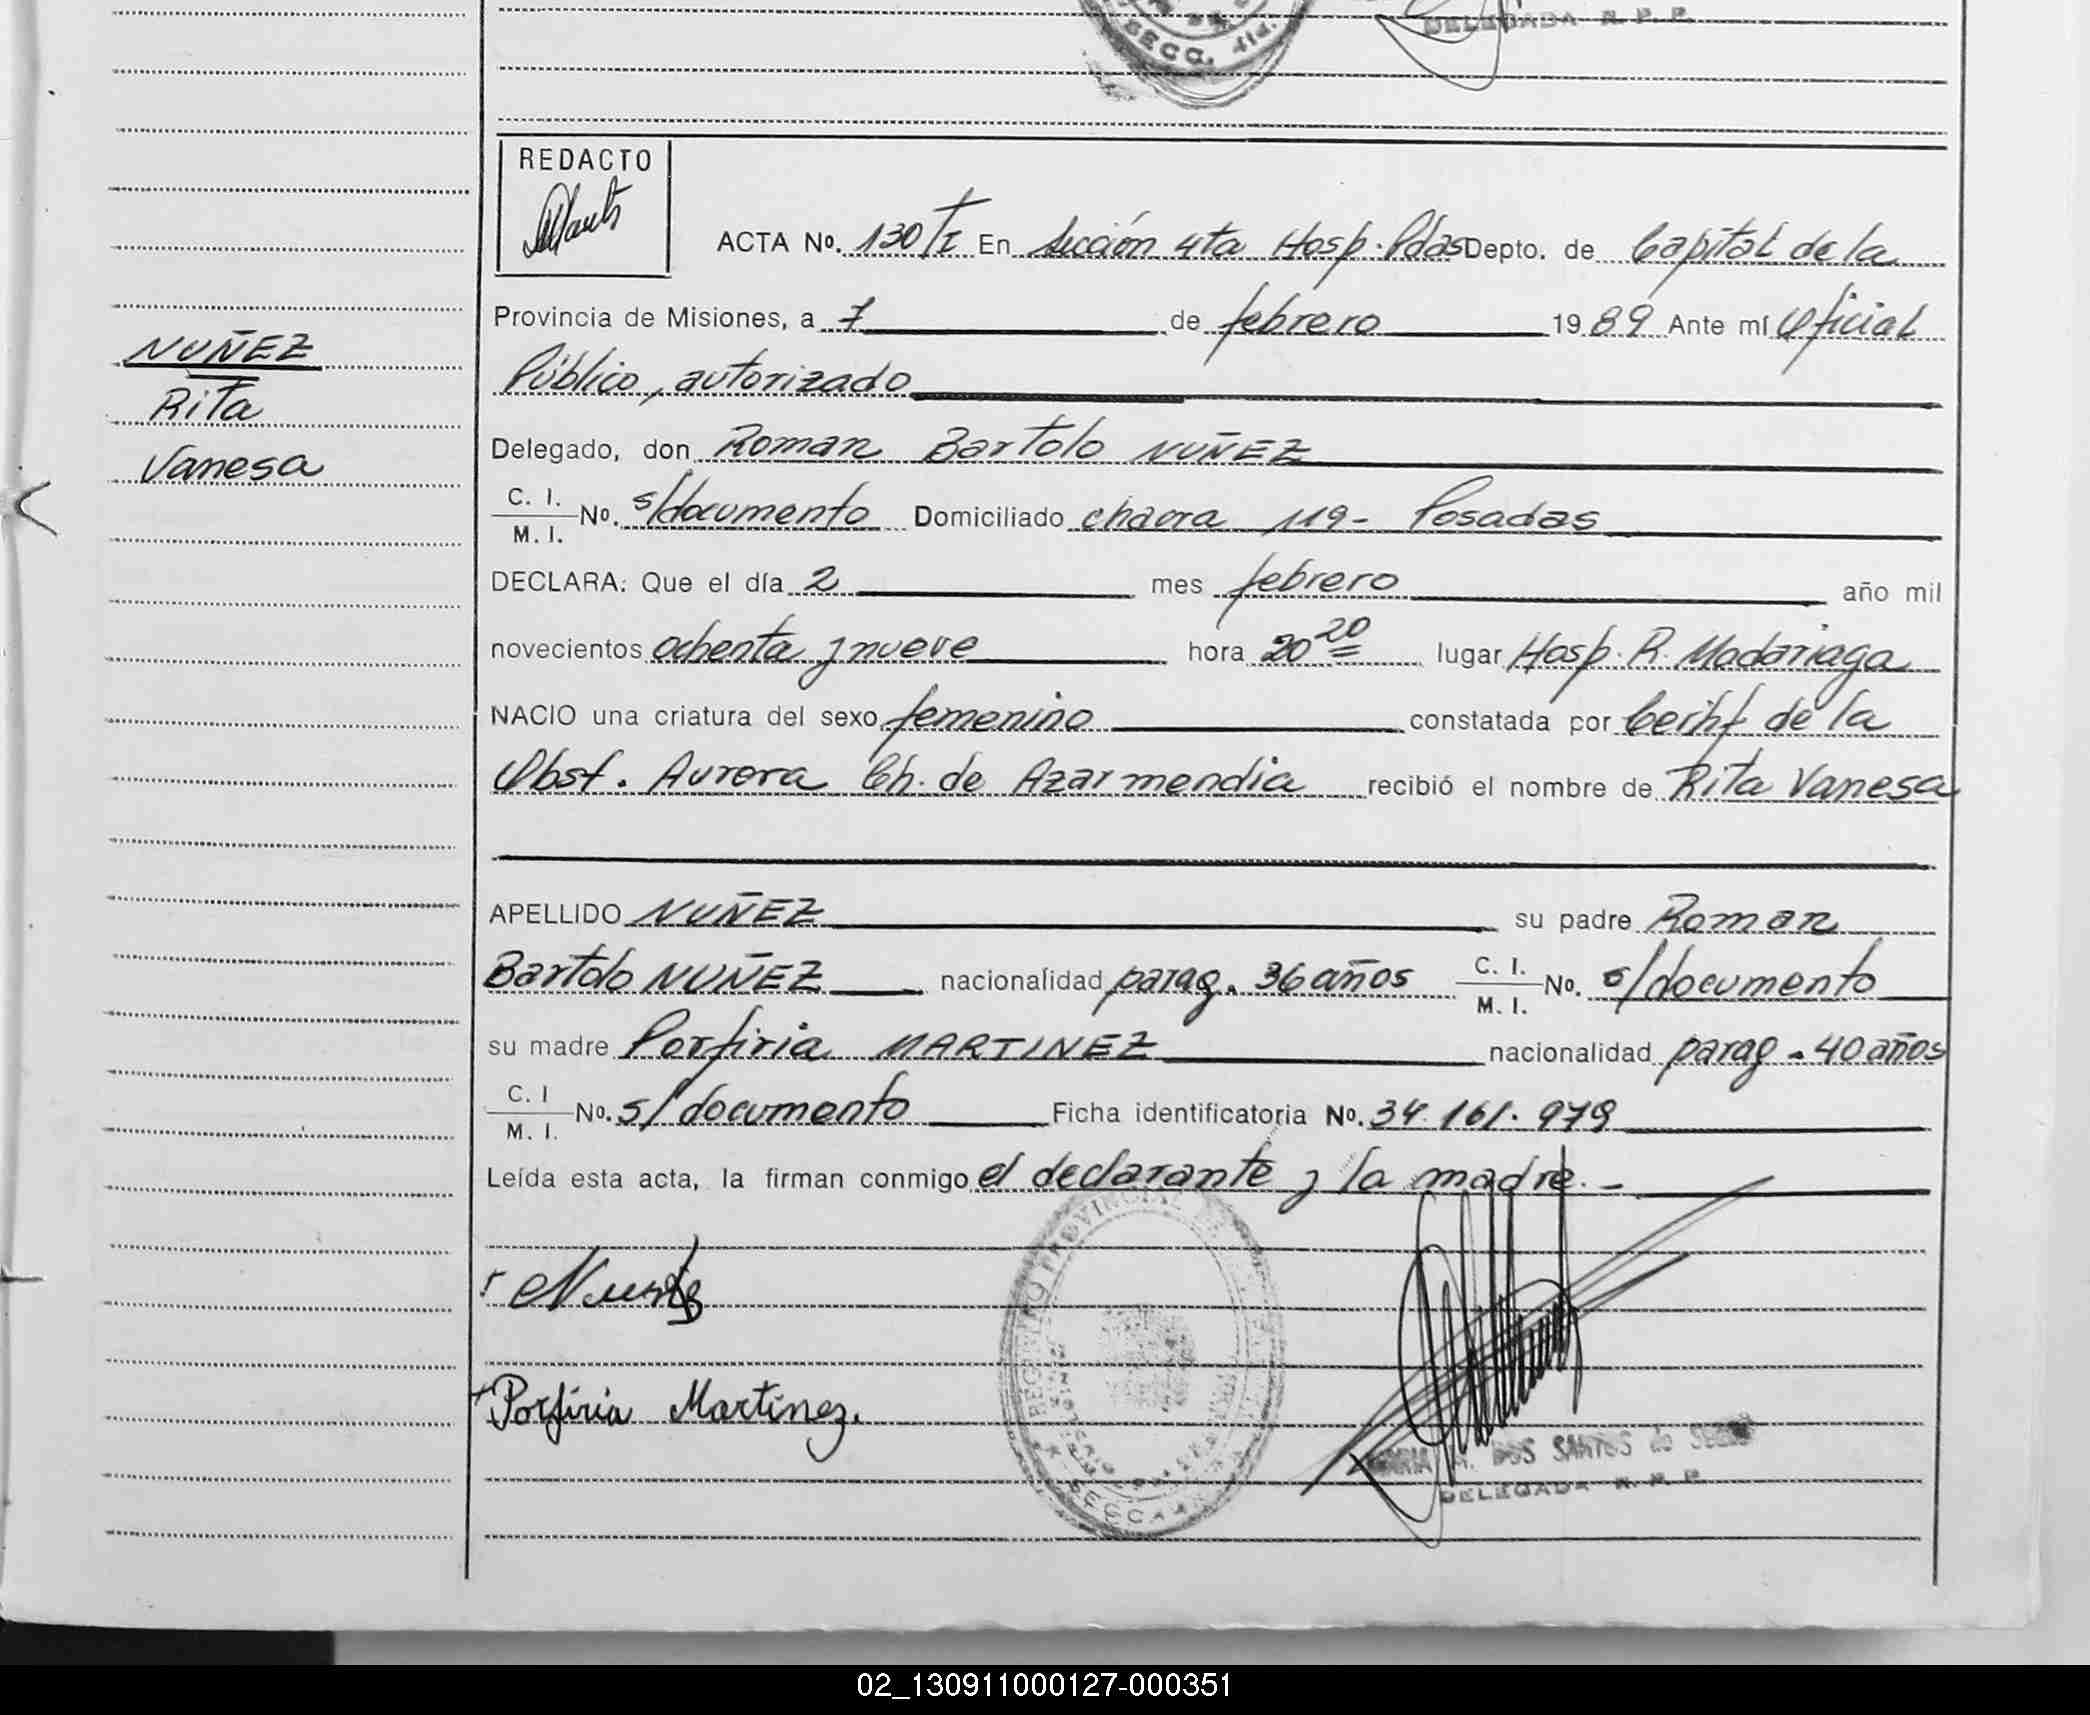 SECC. 4ta.
DELEGADA R. P. P.
REDACTO
ACTA No. 130/I En Sección 4ta Hosp. Pdas Depto. de Capital de la
Provincia de Misiones, a 7 de febrero 1989 Ante mí Oficial
Público, autorizado
NUÑEZ
Rita
Vanesa
Delegado, don Roman Bartolo NUÑEZ
C. I.
M. I. No. s/documento Domiciliado chacra 119- Posadas
DECLARA: Que el día 2 mes febrero año mil
novecientos ochenta y nueve hora 20 20 lugar Hosp. R. Madariaga
NACIO una criatura del sexo femenino constatada por Certif de la
Obst. Aurora Ch. de Azarmendia recibió el nombre de Rita Vanesa
APELLIDO NUÑEZ su padre Roman
Bartolo NUÑEZ nacionalidad parag. 36 años C. I.
M. I. No. s/documento
su madre Porfiria MARTINEZ nacionalidad parag. 40 años
C. I
M. I. No. s/documento Ficha identificatoria No. 34.161.979
Leída esta acta, la firman conmigo el declarante y la madre.-
Porfiria Martinez.
REGISTRO PROVINCIAL DE
DOS SANTOS de
DELEGADA R. P. P.
02_130911000127-000351